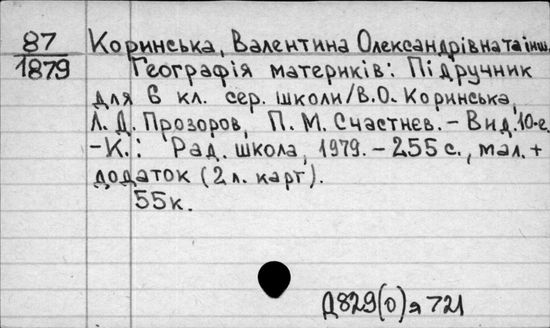 87
1879
Коринська, Валентина Олександрівна та інш.
Географія материків: Підручник
для 6 кл. сер. школи/В.О. Коринська,
Л. Д. Прозоров, П. М. Счастнєв. – Вид. 10-е.
– К.: Рад. школа, 1979. – 255 с., мал. +
додаток (2 л. карт).
55к.
Д829(0)я721